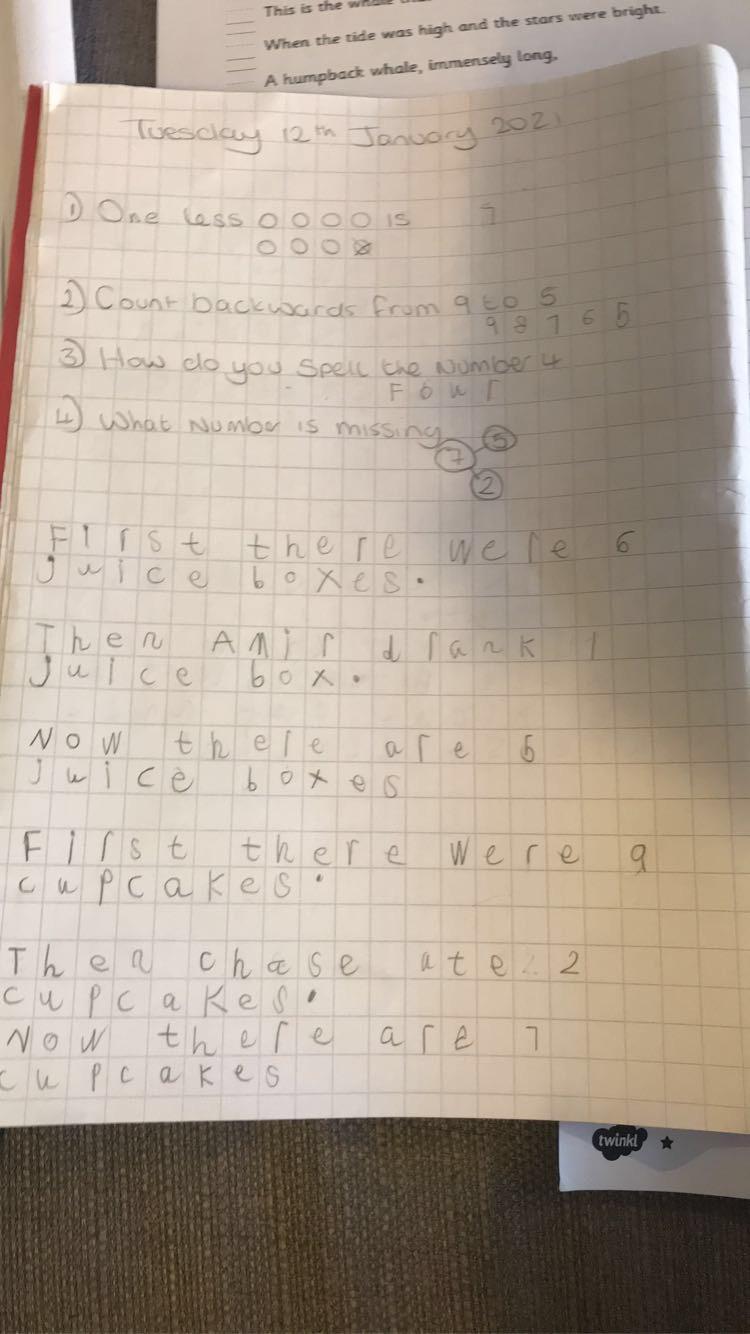 This is the
When the tide was high and the stars were bright.
A humpback whale, immensely long,
Tuesday 12th January 2021
1) One less 0 0 0 0 is 7
0 0 0 0
2) Count backwards from 9 to 5
9 8 7 6 5
3) How do you spell the number 4
Four
4) What number is missing
5
7
2
First there were 6
juice boxes.
Then Amir drank 1
juice box.
Now there are 5
juice boxes
First there were 9
cupcakes.
Then chase ate 2
cupcakes.
Now there are 7
cupcakes
twinkl